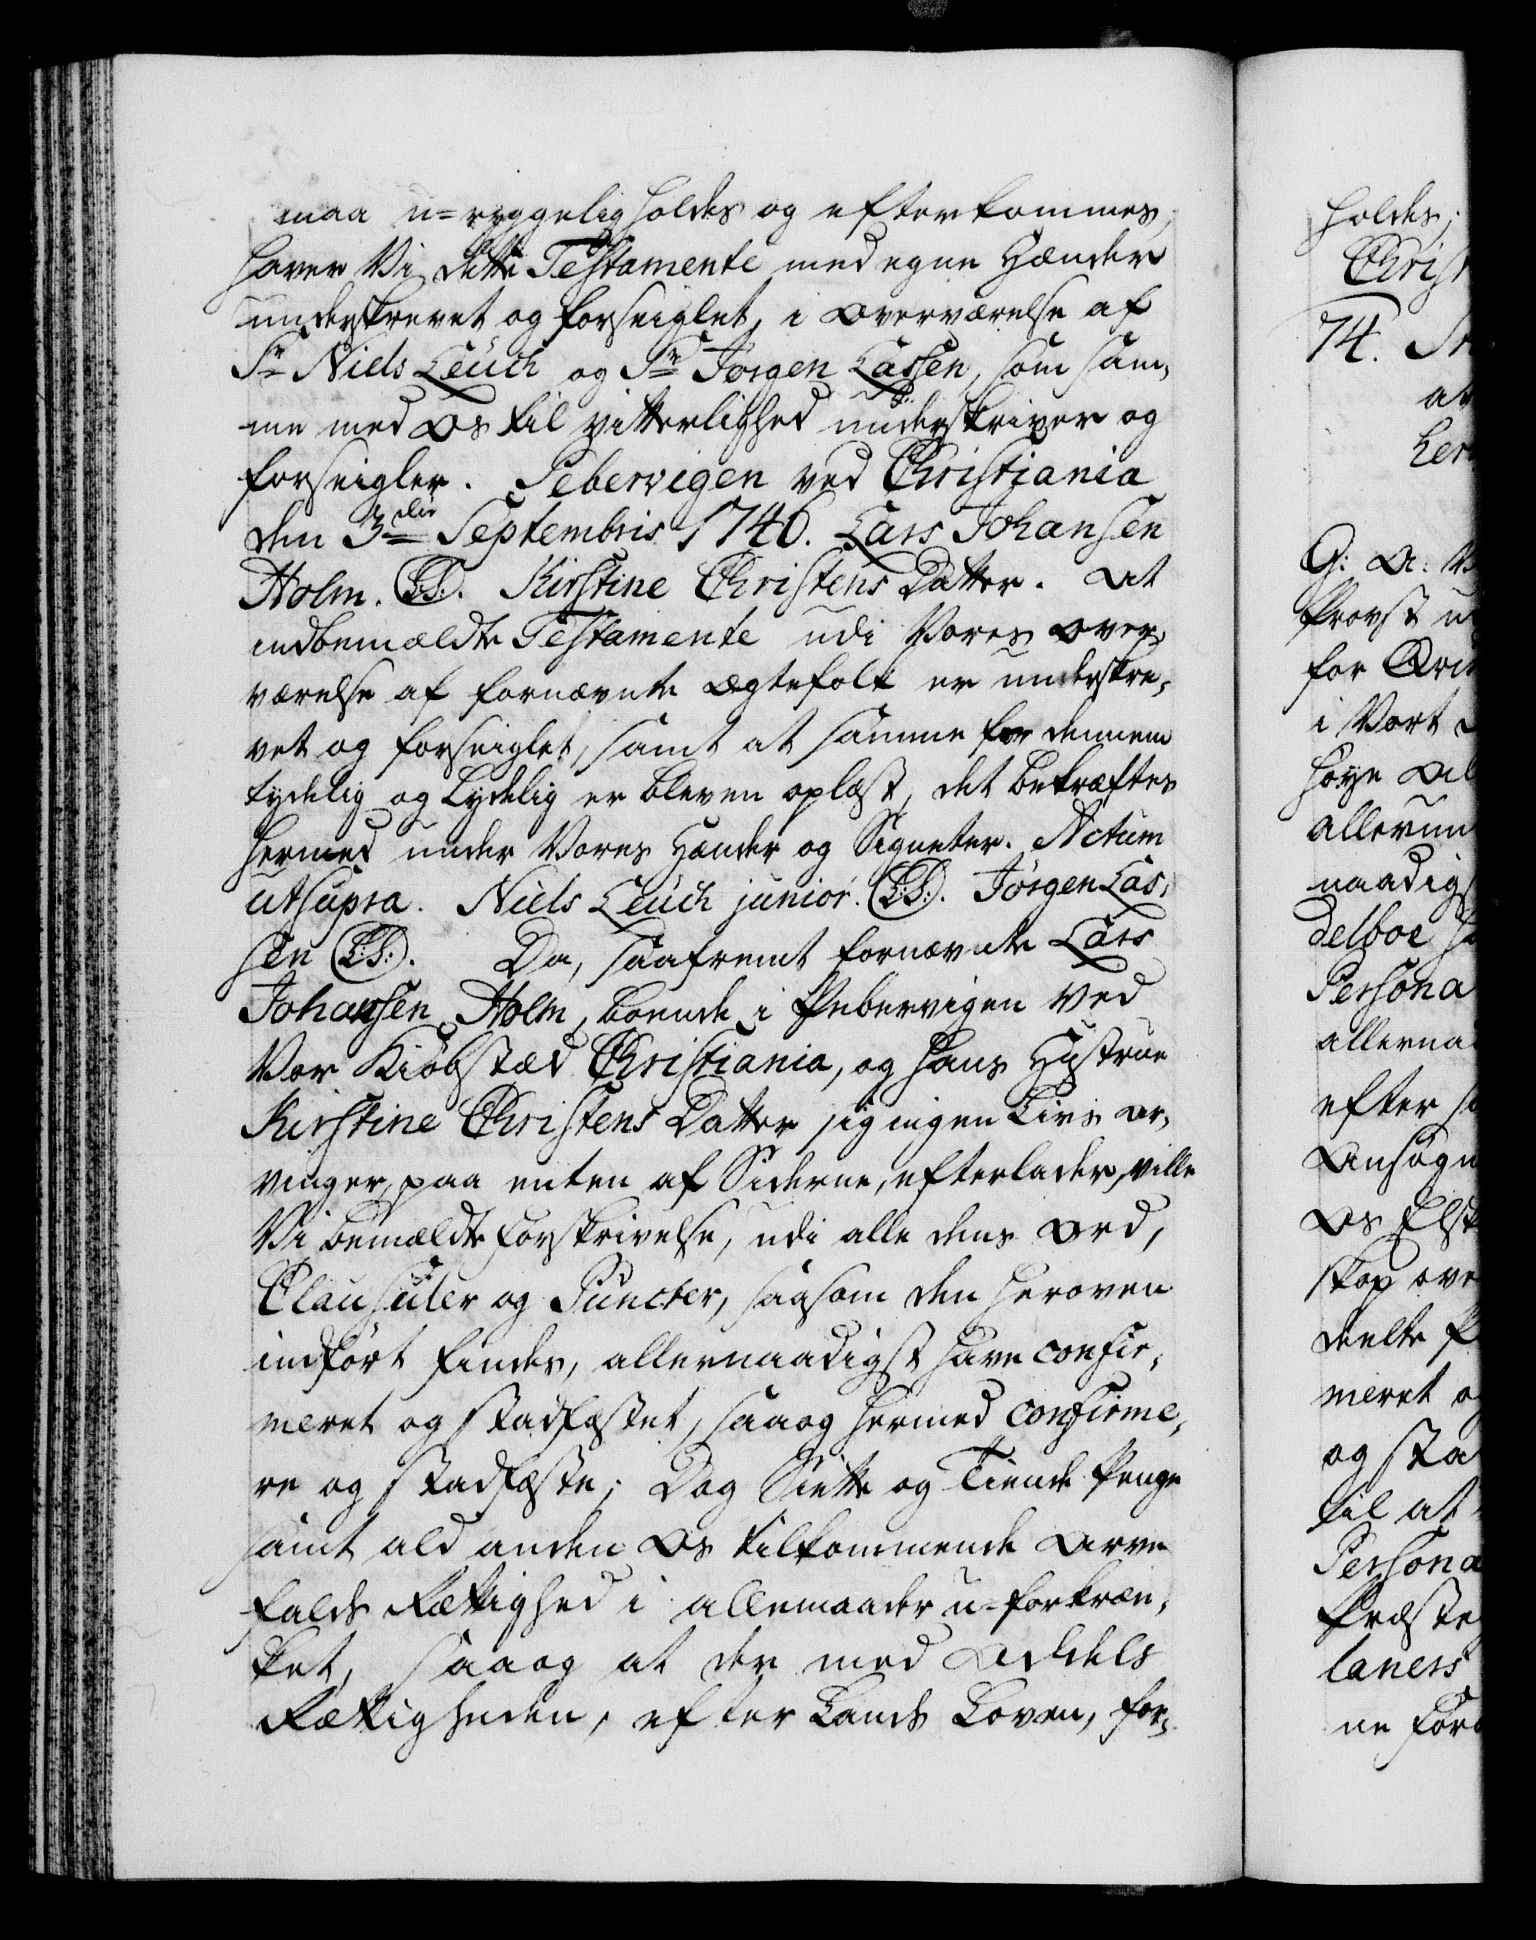 maa u-ryggelig holdes og efterkommes,
haver Vi dette Testamente med egne Hænder
underskrevet og forseiglet, i Overværelse af
Sr Niels Leuch og Sr Jörgen Lassen, som sam-
me med Os til Vitterlighed underskriver og
forseigler. Pebervigen ved Christiania
den 3die Septembris 1746. Lars Johansen
Holm. (L:S:). Kirstine Christens Datter. At
indbemældte Testamente udi Vores Over-
værelse af fornævnte Ægtefolk er underskre-
vet og forseiglet, samt at samme for dennem
tydelig og Lydelig er bleven oplæst, det bekræftes
hermed under Vores Hænder og Signeter. Actum
utsupra. Niels Leuch junior. (L:S:). Jörgen Las-
sen (L:S:). Da, saafremt fornævnte Lars
Johansen Holm, boende i Pebervigen ved
Vor Kiöbstæd Christiania, og hans Hustrue
Kirstine Christens Datter sig ingen Livs Ar-
vinger, paa enten af Siderne, efterlader, ville
Vi bemældte Forskrivelse, udi alle dens Ord,
Clausuler og Puncter, saasom den heroven
indfört findes, allernaadigst have confir-
meret og stadfæstet, saa og hermed confirme-
re og stadfæste; Dog Siette og Tiende Penge
samt ald anden Os tilkommende Arve
Falds Rettighed i allemaader u-forkræn-
ket, saa og at der med Addels
Rettigheden, efter Lands Loven, for-
holdes;
Christ
74.
G: A: V
Provst u
for
i Vort
höye
allerun
naadigs
delboe
Persona
allerna
efter
Ansögn
Os Elsk
skop ove
deelte
meret o
og sta
til at
Persona
Præste
laners
ne